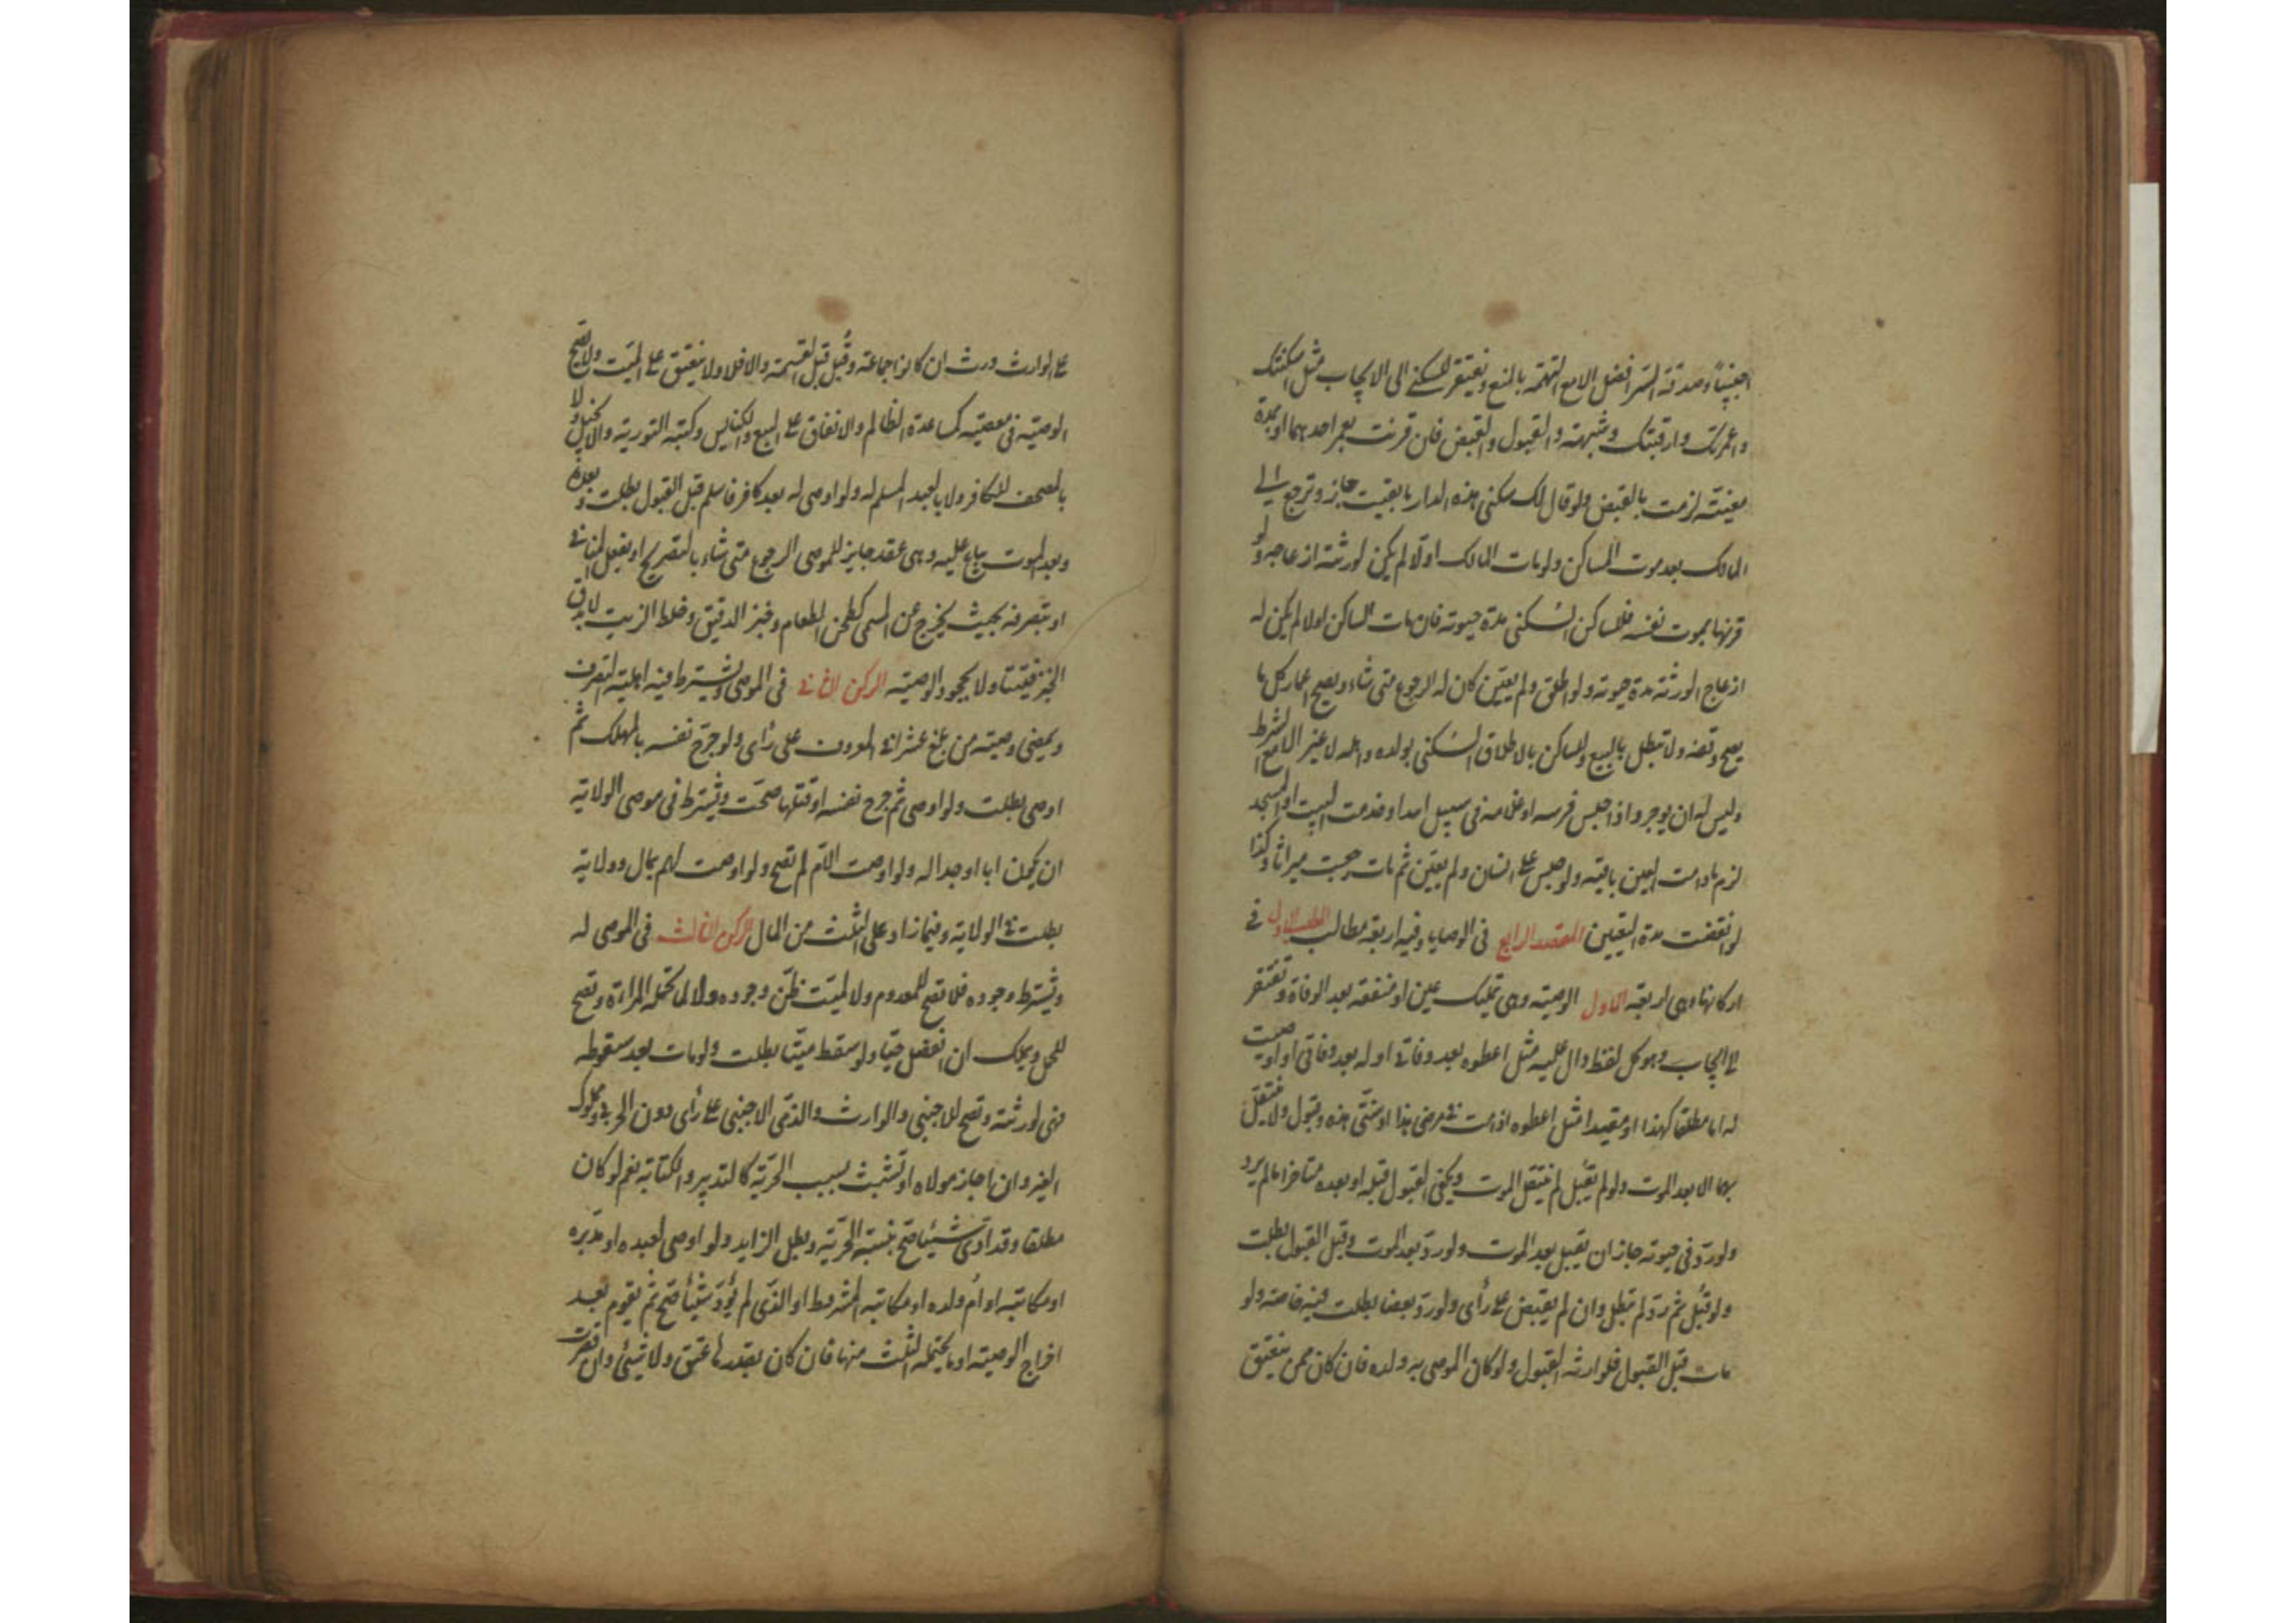 اجنبيا وصدقة السر افضل الا مع التهمة بالمنع وتفتقر السكنى الى الايجاب مثل اسكنتك
واعمرتك وارقبتك وشبهه والقبول والقبض فان قرنت بعمر احدهما او بمدة
معينة لزمت بالقبض ولو قال لك سكنى هذه الدار ما بقيت جاز وترجع الى
المالك بعد موت الساكن ولو مات المالك اولا لم يكن لورثته ازعاجه ولو
قرنها بموت نفسه فللساكن السكنى مدة حيوته فان مات الساكن اولا لم يكن له
ازعاج الورثة مدة حيوته ولو اطلق ولم يعين كان له الرجوع متى شاء ويصح اعمار كل ما
يصح وقفه ولا تبطل بالبيع وللساكن بالاطلاق السكنى بولده واهله لا غير الا مع الشرط
وليس له ان يوجر واذا حبس فرسه او غلامه في سبيل الله او خدمة البيت او المسجد
لزم ما دامت العين باقية ولو حبس على انسان ولم يعين ثم مات رجعت ميراثا وكذا
لو انقضت مدة التعيين المقصد الرابع في الوصايا وفيه اربعة مطالب المطلب الاول في
اركانها وهي اربعة الاول الوصية وهي تمليك عين او منفعة بعد الوفاة وتفتقر
الى ايجاب وهو كل لفظ دال عليه مثل اعطوه بعد وفاتي او له بعد وفاتي او اوصيت
له اما مطلقا كهذا او مقيدا مثل اعطوه اذا مت في مرضي هذا او سنتي هذه وقبول ولا ينتقل
بهما الا بعد الموت ولو لم يقبل لم ينتقل بالموت ويكفي القبول قبله او بعده متاخرا ما لم يرد
ولو رد في حيوته جاز ان يقبل بعد الموت ولو رد بعد الموت وقبل القبول بطلت
ولو قبل ثم رد لم تبطل وان لم يقبض على رأى ولو رد بعضا بطلت فيه خاصة ولو
مات قبل القبول فلوارثه القبول ولو كان الموصى به ولده فان كان ممن ينعتق
على الوارث ورث ان كانوا جماعة وقبل قبل القسمة والا فلا ولا ينعتق على الميت ولا تصح
الوصية في معصية كمساعدة الظالم والانفاق على البيع والكنايس وكتبه التورية والانجيل ولا
بالمصحف للكافر ولا بالعبد المسلم له ولو اوصى له بعبد كافر فاسلم قبل القبول بطلت وبعده
وبعد الموت يباع عليه وهي عقد جايز للموصى الرجوع متى شاء بالتصريح او بفعل المنافي
او بتصرفه بحيث يخرج عن المسمى كطحن الطعام وخبز الدقيق وخلط الزيت لا بدق
الخبز فتيتا ولا بجحود الوصية الركن الثاني في الموصى ويشترط فيه اهلية التصرف
ويمضى وصية من بلغ عشرا في المعروف على رأى ولو جرح نفسه بالمهلك ثم
اوصى بطلت ولو اوصى ثم جرح نفسه او قتلها صحت ويشترط في موصى الولاية
ان يكون ابا او جدا له ولو اوصت الام لم تصح ولو اوصت لهم بمال وولاية
بطلت في الولاية وفيما زاد على الثلث من المال الركن الثالث في الموصى له
ويشترط وجوده فلا تصح للمعدوم ولا لميت ظن وجوده ولا لما تحمله المراة وتصح
للحمل ويملك ان انفصل حيا ولو سقط ميتا بطلت ولو مات بعد سقوطه
فهي لورثته وتصح للاجنبي والوارث والذمى الاجنبي على رأى دون الحربي ومملوك
الغير وان اجاز مولاه او تشبث بسبب الحرية كالتدبير والكتابة نعم لو كان
مطلقا وقد ادى شيئا صح بنسبة الحرية وبطل الزايد ولو اوصى لعبده او مدبره
او مكاتبه او ام ولده او مكاتبه المشروط او الذى لم يؤد شيئا صح ثم يقوم بعد
اخراج الوصية او ما يحتمله الثلث منها فان كان بقدرها عتق ولا شيئ وان قصرت